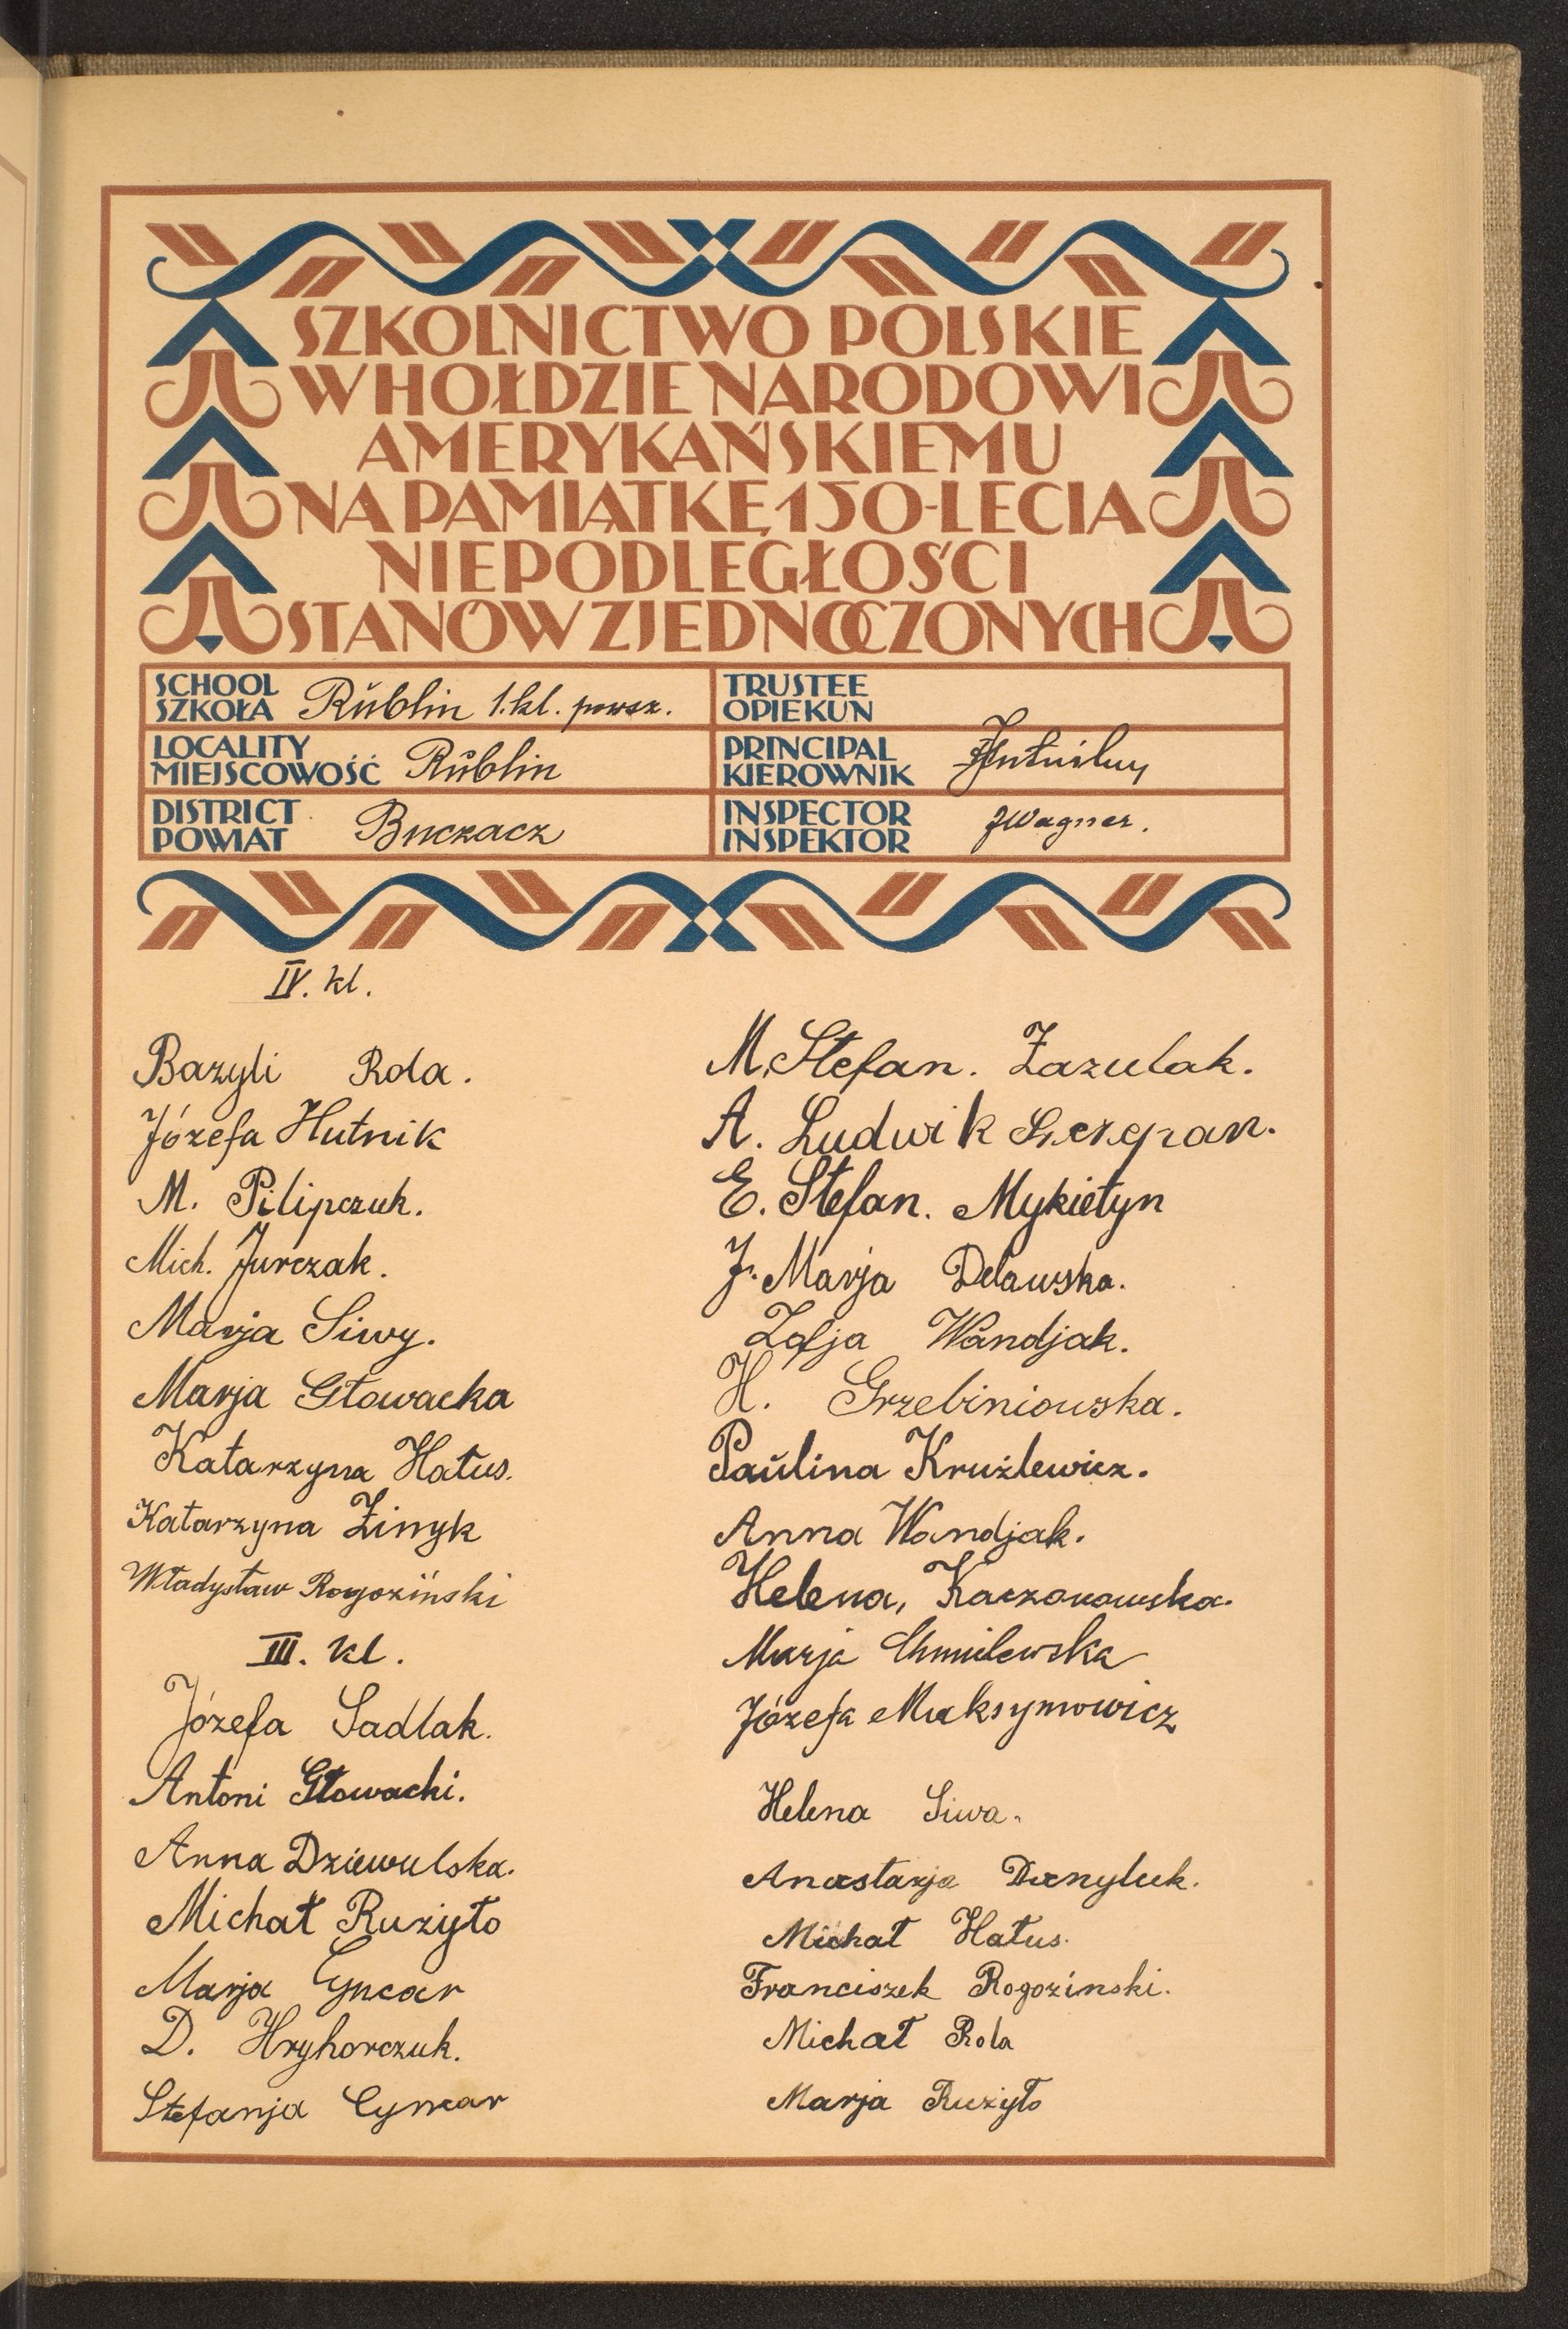 SZKOLNICTWO POLSKIE
W HOŁDZIE NARODOWI
AMERYKAŃSKIEMU
NA PAMIĄTKĘ 150-LECIA
NIEPODLEGŁOŚCI
STANÓW ZJEDNOCZONYCH
SCHOOL
SZKOŁA Rŭblin 1. kl. powsz.
TRUSTEE
OPIEKUN
LOCALITY
MIEJSCOWOŚĆ Rŭblin
PRINCIPAL
KIEROWNIK
DISTRICT
POWIAT Buczacz
INSPECTOR
INSPEKTOR JWagner.
IV. kl.
Bazyli Rola.
Józefa Hutnik
M. Pilipczuk.
Mich. Jurczak.
Marja Siwy.
Marja Głowacka
Katarzyna Hatus.
Katarzyna Żinyk
Władysław Rogoziński
III. kl.
Józefa Sadlak.
Antoni Głowacki.
Anna Dziewulska.
Michał Rużyło
Marja Cyncar
D. Hryhorczuk.
Stefanja Cyncar
M. Stefan. Zazulak.
A. Ludwik Szczepan.
E. Stefan. Mykietyn
J. Marja Delawska.
Zofja Wandjak.
H. Grzebiniowska.
Paŭlina Krużlewicz.
Anna Wandjak.
Helena, Kaczanowska.
Marja Chmilewska
Józefa Maksymowicz
Helena Siwa.
Anastazja Danyluk.
Michał Hatus.
Franciszek Rogozinski.
Michał Rola
Marja Rużyło